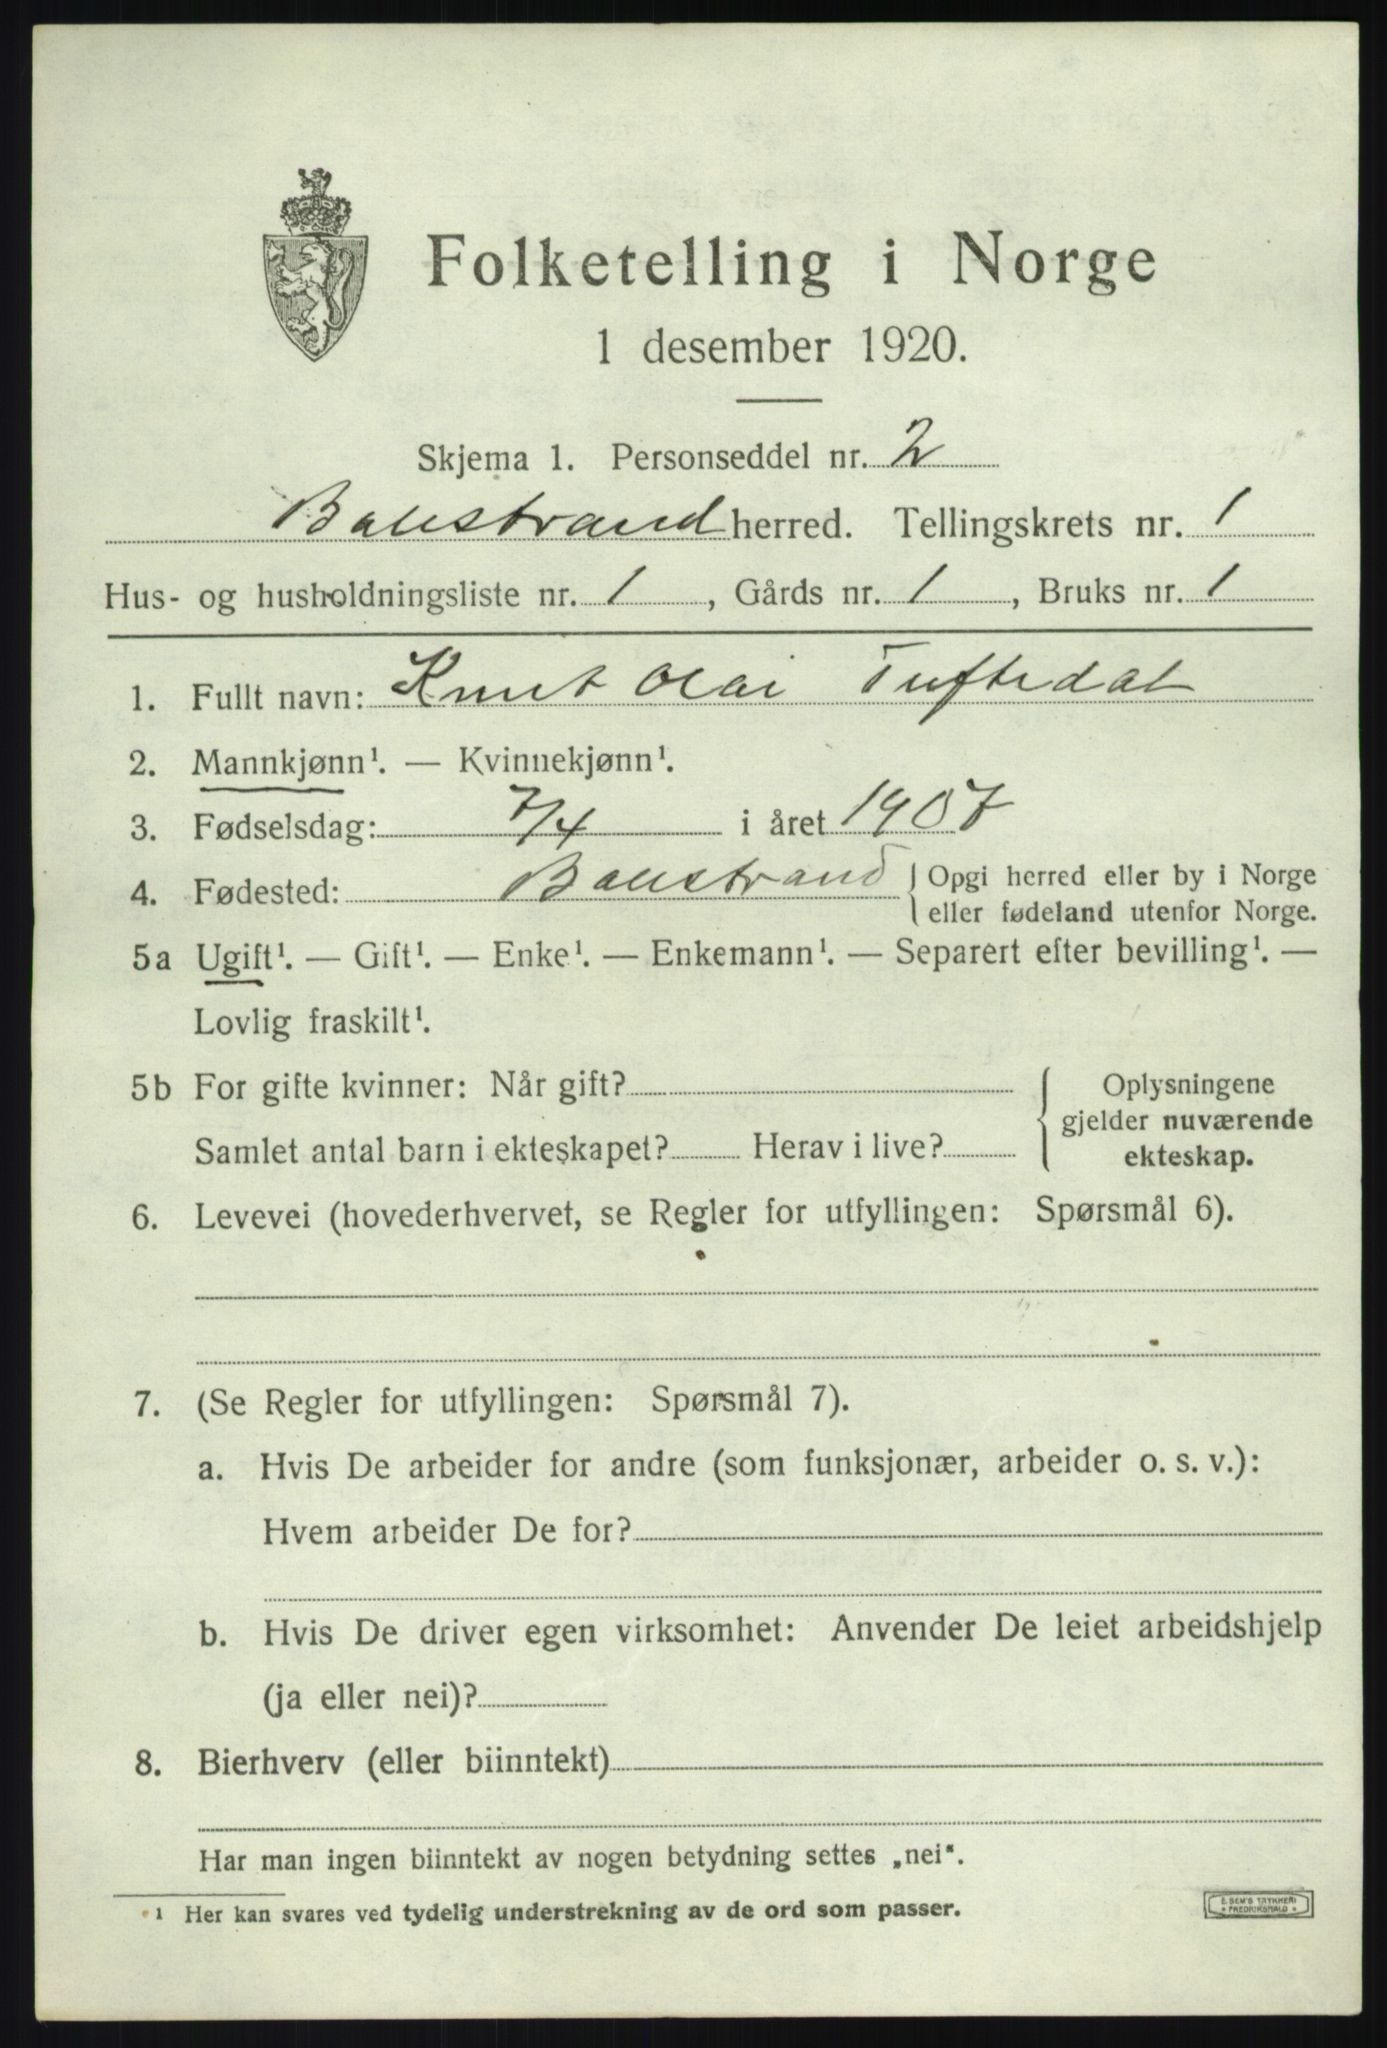 Folketelling i Norge
1 desember 1920.
Skjema 1. Personseddel nr. 2
Balestrand herred. Tellingskrets nr. 1
Hus- og husholdningsliste nr. 1, Gårds nr. 1, Bruks nr. 1
1. Fullt navn: Knut Olai Tuftedal
2. Mannkjønn¹. — Kvinnekjønn¹.
3. Fødselsdag: 7/4 i året 1907
4. Fødested: Balestrand { Opgi herred eller by i Norge
eller fødeland utenfor Norge.
5a Ugift¹. — Gift¹. — Enke¹. — Enkemann¹. — Separert efter bevilling¹. —
Lovlig fraskilt¹.
5b For gifte kvinner: Når gift? { Oplysningene
gjelder nuværende
Samlet antal barn i ekteskapet? Herav i live? ekteskap.
6. Levevei (hovederhvervet, se Regler for utfyllingen: Spørsmål 6).
7. (Se Regler for utfyllingen: Spørsmål 7).
a. Hvis De arbeider for andre (som funksjonær, arbeider o. s. v.):
Hvem arbeider De for?
b. Hvis De driver egen virksomhet: Anvender De leiet arbeidshjelp
(ja eller nei)?
8. Bierhverv (eller biinntekt)
Har man ingen biinntekt av nogen betydning settes „nei“.
¹ Her kan svares ved tydelig understrekning av de ord som passer.
E. SEM'S TRYKKERI
* FREDRIKSHALD *